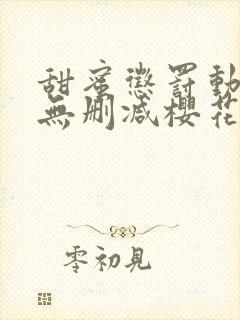 甜蜜懲罰動
無刪減櫻花
零初見